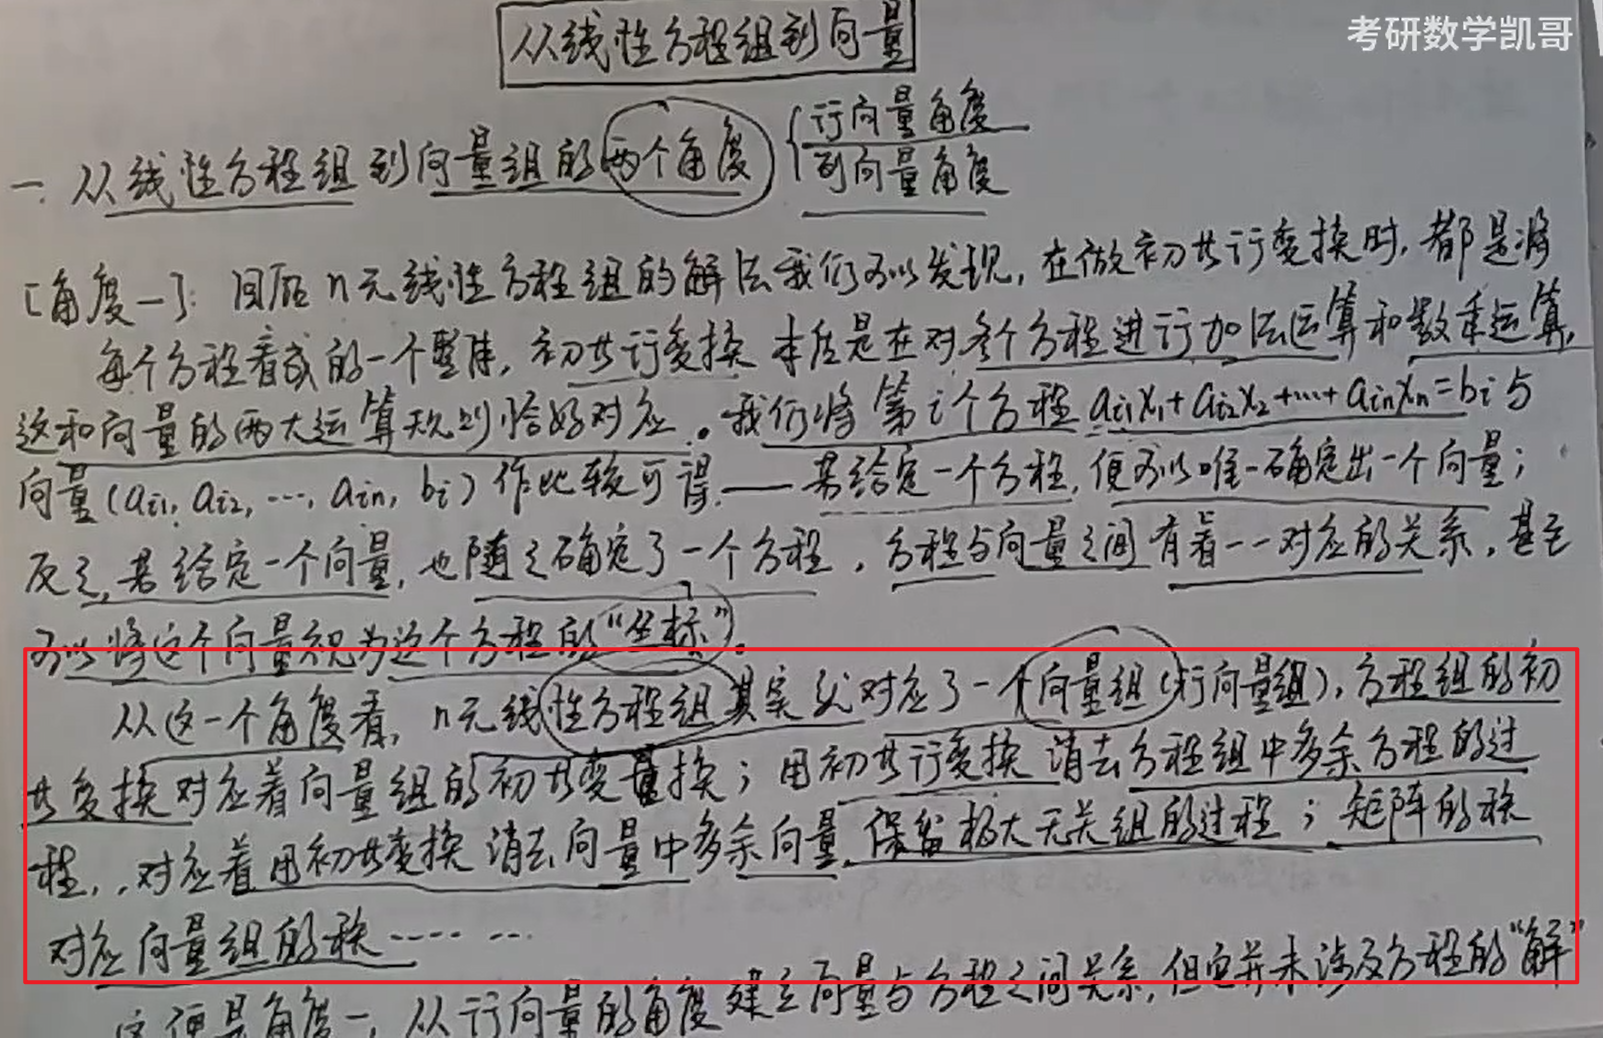 考研数学凯哥
从线性方程组到向量
一. 从线性方程组到向量组的两个角度 { 行向量角度
列向量角度
[角度一]: 回顾n元线性方程组的解法我们可以发现, 在做初等行变换时, 都是将
每个方程看成的一个整体, 初等行变换 本质是在对各个方程进行加法运算和数乘运算,
这和向量的两大运算规则恰好对应。我们将第i个方程 ai1x1+ai2x2+…+ainxn=bi与
向量(ai1, ai2, …, ain, bi)作比较可得——若给定一个方程, 便可以唯一确定出一个向量;
反之, 若给定一个向量, 也随之确定了一个方程, 方程与向量之间有着一一对应的关系, 甚至
可以将这个向量视为这个方程的“坐标”。
从这一个角度看, n元线性方程组其实就对应了一个向量组(行向量组), 方程组的初
等变换对应着向量组的初等变换; 用初等行变换 消去方程组中多余方程的过
程, 对应着用初等变换 消去向量中多余向量, 保留极大无关组的过程; 矩阵的秩
对应向量组的秩……
这便是角度一, 从行向量的角度建立向量与方程之间关系, 但它并未涉及方程的“解”